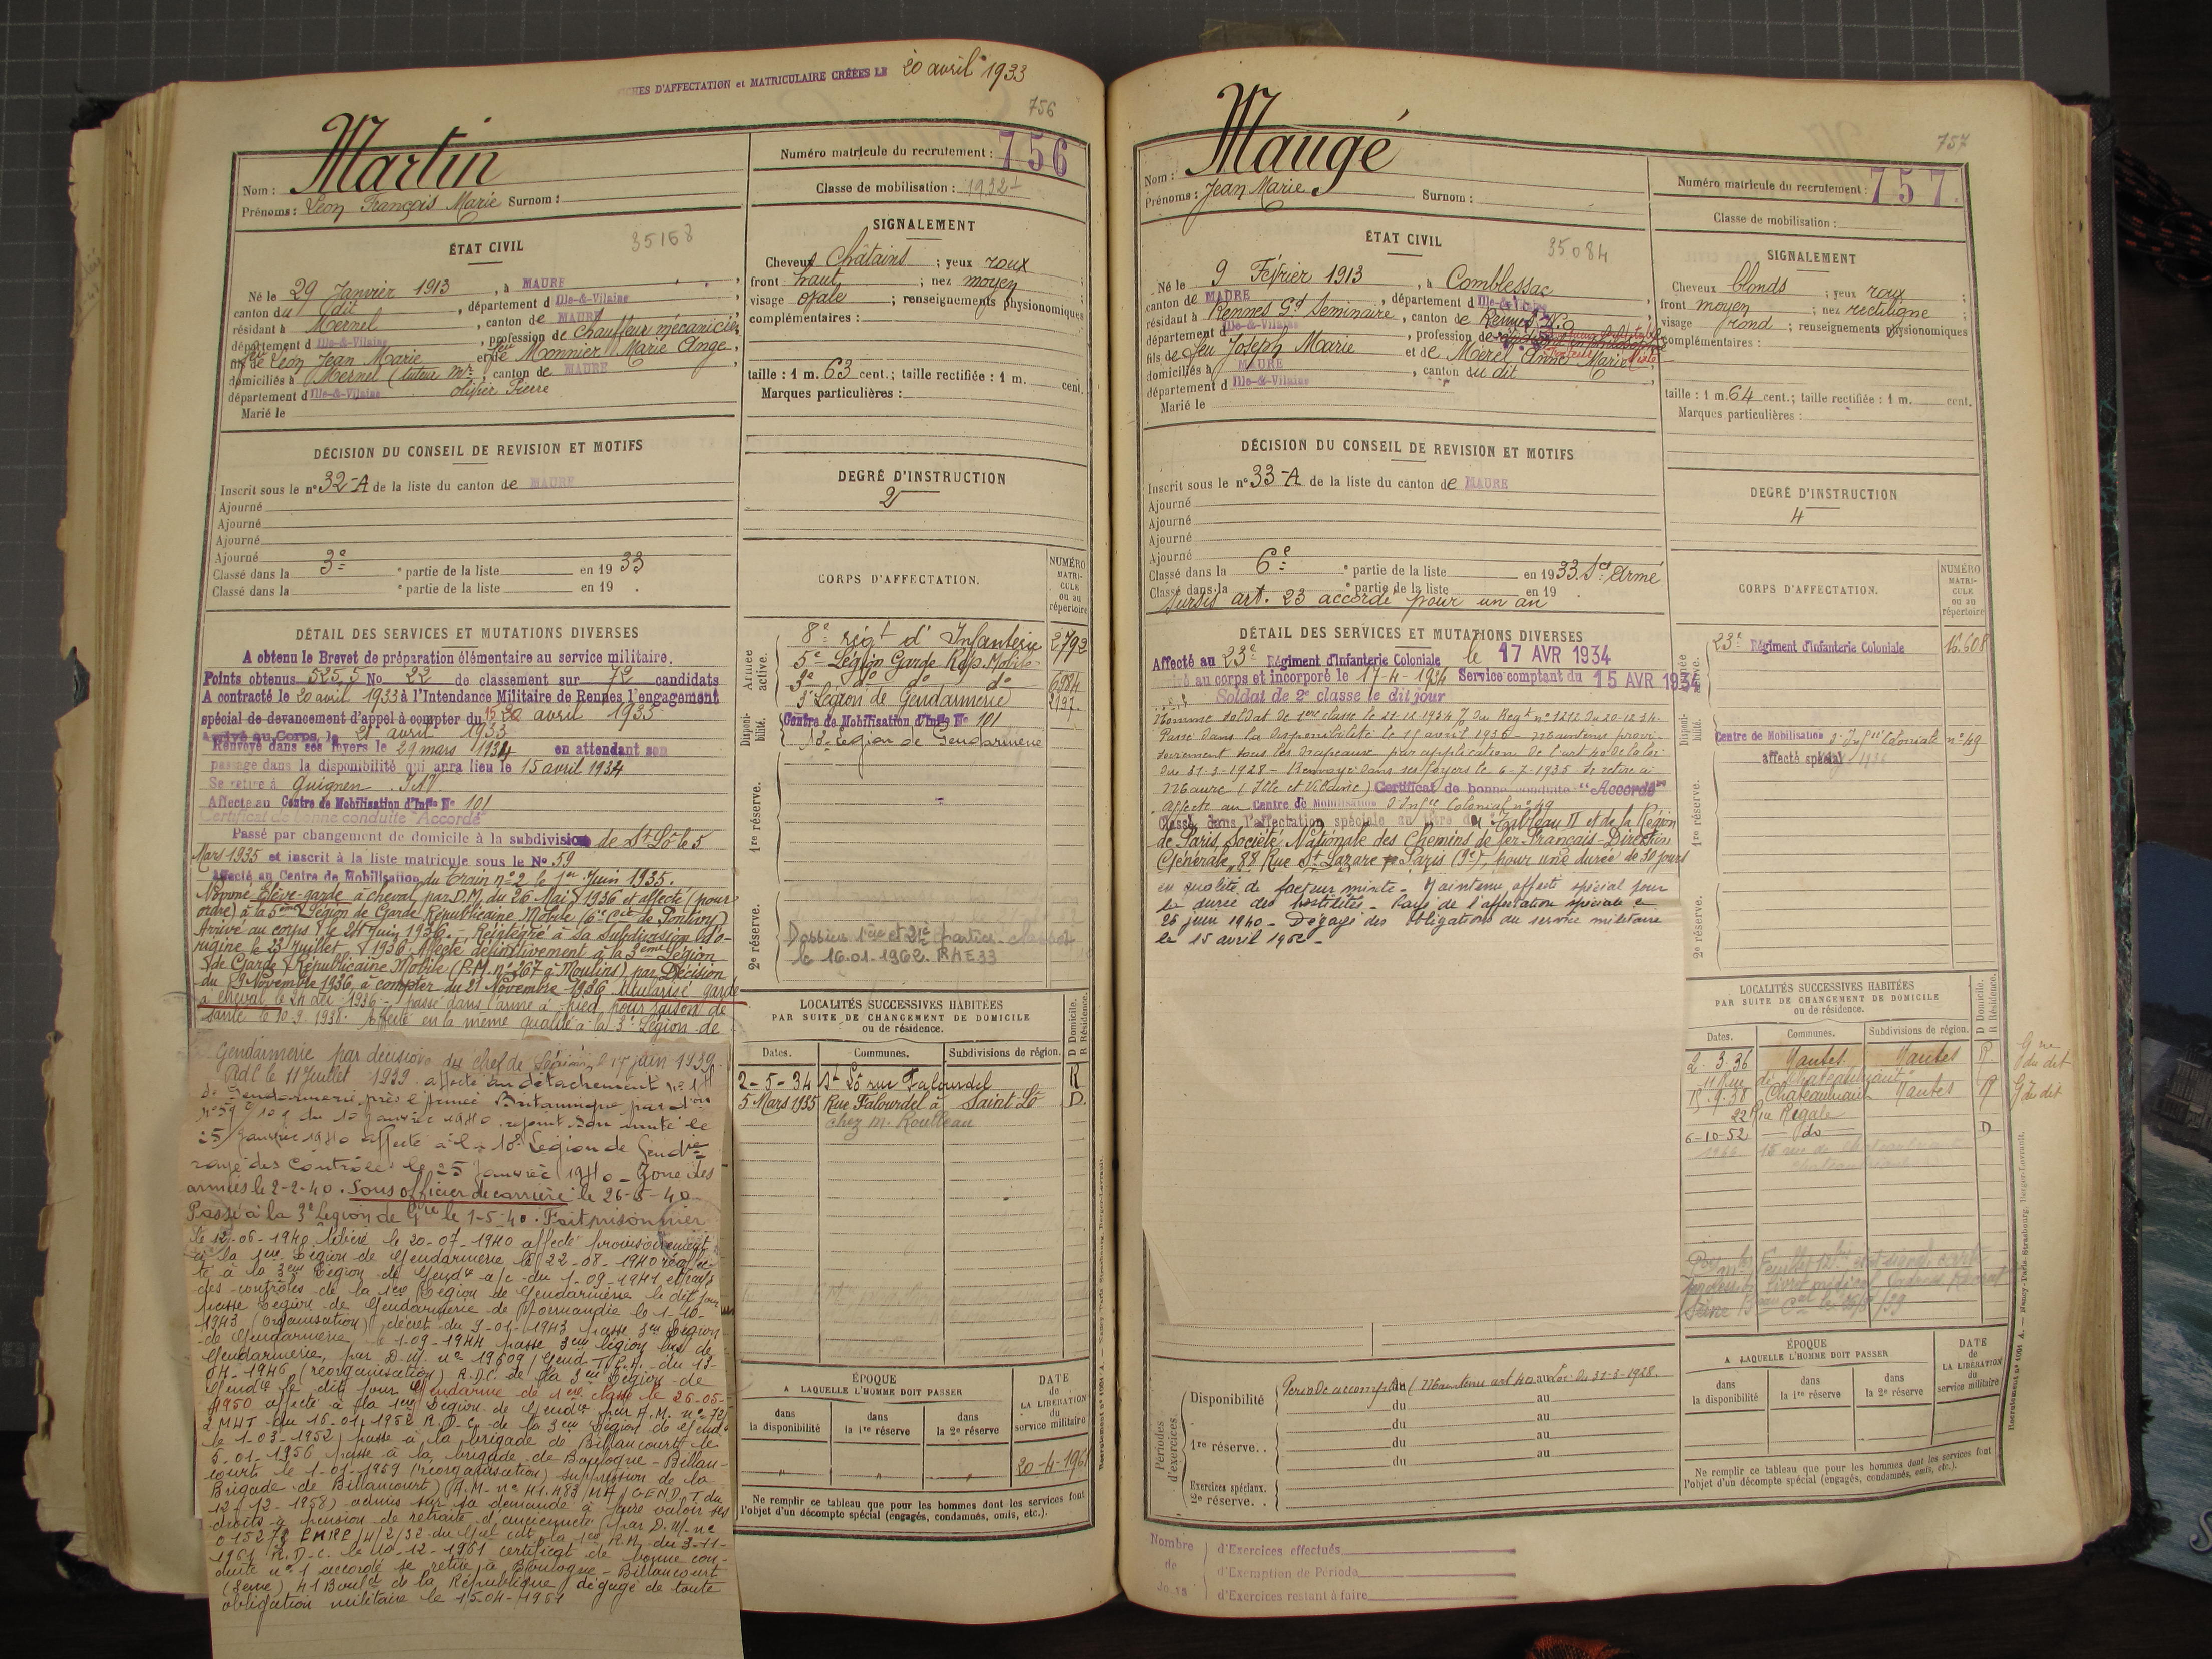 FICHES D'AFFECTATION et MATRICULAIRE CRÉÉES LE 20 avril 1933
756
Nom : Martin
Prénoms : Léon François Marie Surnom :
Numéro matricule du recrutement : 756
Classe de mobilisation : 1932
ÉTAT CIVIL
35168
Né le 29 Janvier 1913, à MAURE,
canton du dit, département d Ille-&-Vilaine,
résidant à Mernel, canton de MAURE
département d Ille-&-Vilaine, profession de chauffeur mécanicien
fils de Léon Jean Marie et de Monnier Marie Ange,
domiciliés à Mernel (tuteur Mr, canton de MAURE
département d Ille-&-Vilaine Olivier Pierre
Marié le
SIGNALEMENT
Cheveux Châtains ; yeux roux
front haut ; nez moyen ;
visage ovale ; renseignements physionomiques
complémentaires :
taille : 1 m. 63 cent.; taille rectifiée : 1 m. cent.
Marques particulières :
DÉCISION DU CONSEIL DE REVISION ET MOTIFS
Inscrit sous le n° 32-A de la liste du canton de MAURE
Ajourné
Ajourné
Ajourné
Ajourné
Classé dans la 3e partie de la liste en 1933
Classé dans la partie de la liste en 19 .
DEGRÉ D'INSTRUCTION
2
DÉTAIL DES SERVICES ET MUTATIONS DIVERSES
A obtenu le Brevet de préparation élémentaire au service militaire.
Points obtenus 525,5 No 22 de classement sur 72 candidats
A contracté le 20 avril 1933 à l'Intendance Militaire de Rennes l'engagement
spécial de devancement d'appel à compter du 15 20 avril 1933
Arrivé au Corps le 21 avril 1933
Renvoyé dans ses foyers le 29 mars 1934 en attendant son
passage dans la disponibilité qui aura lieu le 15 avril 1934
Se retire à Guignen I&V
Affecté au Centre de Mobilisation d'Inf^ie N° 101
Certificat de bonne conduite "Accordé"
Passé par changement de domicile à la subdivision de St Lô le 5
Mars 1935 et inscrit à la liste matricule sous le N° 59
Affecté au Centre de Mobilisation du Train n° 2 le 1er Juin 1935.
Nommé Elève-garde à cheval, par D.M. du 26 Mai 1936 et affecté (pour
ordre) à la 5eme Légion de Garde Républicaine Mobile (6e Cie de Pontivy)
Arrivé au corps le 24 Juin 1936. Réintégré à sa subdivision d'o-
rigine le 23 Juillet 1936. Affecté définitivement à la 3eme Légion
de Garde Républicaine Mobile (P.M. n° 267 à Moulins) par Décision
du 9 Novembre 1936, à compter du 21 Novembre 1936. Titularisé garde
à cheval le 24 déc 1936 - passé dans l'arme à pied pour raison de
santé le 10.9.1938. Affecté en la même qualité à la 3e Légion de
Gendarmerie par décision du chef de Légion, le 17 juin 1939.
RdC le 11 Juillet 1939. affecté au détachement n° 1
de Gendarmerie près l'Armée Britannique par
10 Janvier 1940 rejoint son unité le
25 Janvier 1940 affecté à la 18e Légion de Gendie
rayé des Contrôles le 25 Janvier 1940 - Zone des
armées le 2-2-40. Sous officier de carrière le 26-5-40
Passé à la 3e Légion de Gie le 1-5-40. Fait prisonnier
le 12-06-1940 libéré le 20-07-1940 affecté provisoirement
à la 1ère Légion de Gendarmerie le 22-08-1940
à la 3eme Légion de Gendie a/c du 1-09-1941 et rayé
des contrôles de la 1ère Légion de Gendarmerie le dit jour
passe Légion de Gendarmerie de Normandie le 1-10-
1943 (Organisation) décret du 9-01-1943 passe 3me Légion
de Gendarmerie, le 1-09-1944 passe 3eme légion bis de
Gendarmerie, par D.M. n° 19609/Gend. T. du 13-
04-1946 (réorganisation) R.D.C. de la 3eme Légion de
Gendie le dit jour Gendarme de 1ère classe le 26-05-
1950 affecté à la 1ère Légion de Gendie par A.M. n° 72
2 MAT du 16-01-1952 R.D.C. de la 3eme Légion de Gend.
le 1-03-1952) passe à la brigade de Billancourt le
5-01-1956 passe à la brigade de Boulogne-Billan-
court le 1-01-1959 (réorganisation) suppression de la
Brigade de Billancourt) (A.M. n° 41.483/MA/GEND.T. du
12-12-1958) admis sur sa demande à faire valoir ses
droits à pension de retraite d'ancienneté (par D.M. n°
du Gal cdt la 1ère R.M. du 3-11-
1961 R.D.C. le 10-12-1961 certificat de bonne con-
duite n° 1 accordé se retire à Boulogne-Billancourt
(Seine) 41 Boulrd de la République dégagé de toute
obligation militaire le 15-04-1961
CORPS D'AFFECTATION.
NUMÉRO MATRI-CULE ou au répertoire
Armée active.
8e régt d'Infanterie 2792
5e Légion Garde Rép. Mobile
3e do do do 6984
3e Légion de Gendarmerie 2197
Disponi-bilité.
Centre de Mobilisation d'Inf^ie N° 101
18e Légion de Gendarmerie
1re réserve.
2e réserve.
Dossier 1ère et 2e parties classés
le 16.01.1962.
LOCALITÉS SUCCESSIVES HABITÉES
PAR SUITE DE CHANGEMENT DE DOMICILE
ou de résidence.
D Domicile. R Résidence.
Dates. Communes. Subdivisions de région.
2-5-34 St Lô rue Falourdel R
5 Mars 1935 Rue Falourdel à Saint Lô D.
chez M. Roulleau
ÉPOQUE
A LAQUELLE L'HOMME DOIT PASSER
DATE de LA LIBÉRATION du service militaire
dans la disponibilité
dans la 1re réserve
dans la 2e réserve
" " " 20-4-1961
Ne remplir ce tableau que pour les hommes dont les services font
l'objet d'un décompte spécial (engagés, condamnés, omis, etc.).
757
Nom : Maugé
Prénoms : Jean Marie Surnom :
Numéro matricule du recrutement : 757.
Classe de mobilisation :
ÉTAT CIVIL
35084
Né le 9 Février 1913, à Comblessac
canton de MAURE, département d Ille-&-Vilaine
résidant à Rennes Gd Séminaire, canton de Rennes N.O
département d Ille-&-Vilaine, profession de
fils de feu Joseph Marie et de Mérel Anne Marie
domiciliés à MAURE, canton du dit
département d Ille-&-Vilaine
Marié le
SIGNALEMENT
Cheveux blonds ; yeux roux ;
front moyen ; nez rectiligne ;
visage rond ; renseignements physionomiques
complémentaires :
taille : 1 m. 64 cent.; taille rectifiée : 1 m. cent.
Marques particulières :
DÉCISION DU CONSEIL DE REVISION ET MOTIFS
Inscrit sous le n° 33-A de la liste du canton de MAURE
Ajourné
Ajourné
Ajourné
Ajourné
Classé dans la 6e partie de la liste en 1933. Sce Armé
Classé dans la partie de la liste en 19
Sursis art. 23 accordé pour un an
DEGRÉ D'INSTRUCTION
4
DÉTAIL DES SERVICES ET MUTATIONS DIVERSES
Affecté au 23e Régiment d'Infanterie Coloniale le 17 AVR 1934
Arrivé au corps et incorporé le 17-4-1934 Service comptant du 15 AVR 1934
Soldat de 2e classe le dit jour
Nommé soldat de 1ère classe le 21-12-1934 O/ du Regt n° 1212 du 20-12-34.
Passé dans la disponibilité le 15 avril 1935 - Maintenu provi-
soirement sous les drapeaux par application de l'art 40 de la loi
du 31-3-1928 - Renvoyé dans ses foyers le 6-7-1935 Se retire à
Maure (Ille et Vilaine) Certificat de bonne conduite "Accordé"
Affecté au Centre de Mobilisation d'Infie Colonial n° 49
Classé dans l'affectation spéciale au titre du Tableau II et de la Région
de Paris Société Nationale des Chemins de fer Français - Direction
Générale, 88 Rue St Lazare Paris (9e), pour une durée de 30 jours
en qualité de facteur mixte - Maintenu affecté spécial pour
la durée des hostilités - Rayé de l'affectation spéciale le
25 juin 1940 - Dégagé des obligations du service militaire
le 15 avril 1962 -
CORPS D'AFFECTATION.
NUMÉRO MATRI-CULE ou au répertoire
Armée active.
23e Régiment d'Infanterie Coloniale 16.608
Disponi-bilité.
Centre de Mobilisation d'Infie Coloniale n° 49
affecté spécial
1re réserve.
2e réserve.
LOCALITÉS SUCCESSIVES HABITÉES
PAR SUITE DE CHANGEMENT DE DOMICILE
ou de résidence.
D Domicile. R Résidence.
Dates. Communes. Subdivisions de région.
2.3.36 Nantes Nantes R. Gne du dit
11 Rue de Chateaubriant
15.9.38 Chateaubriant Nantes R Gne du dit
22 Rue Régale
6-10-52 do D
1966 15 rue de Chateaubriant
Périodes d'exercices.
Disponibilité Période accomplie (Maintenu art 40 au Loi du 31-3-1928.
du au
du au
1re réserve. . du au
du au
du au
Exercices spéciaux.
2e réserve. .
ÉPOQUE
A LAQUELLE L'HOMME DOIT PASSER
DATE de LA LIBÉRATION du service militaire
dans la disponibilité
dans la 1re réserve
dans la 2e réserve
Ne remplir ce tableau que pour les hommes dont les services font
l'objet d'un décompte spécial (engagés, condamnés, omis, etc.).
Nombre de Jours
d'Exercices effectués
d'Exemption de Période
d'Exercices restant à faire
Recrutement N° 1051 A. — Nancy-Paris-Strasbourg, Berger-Levrault.